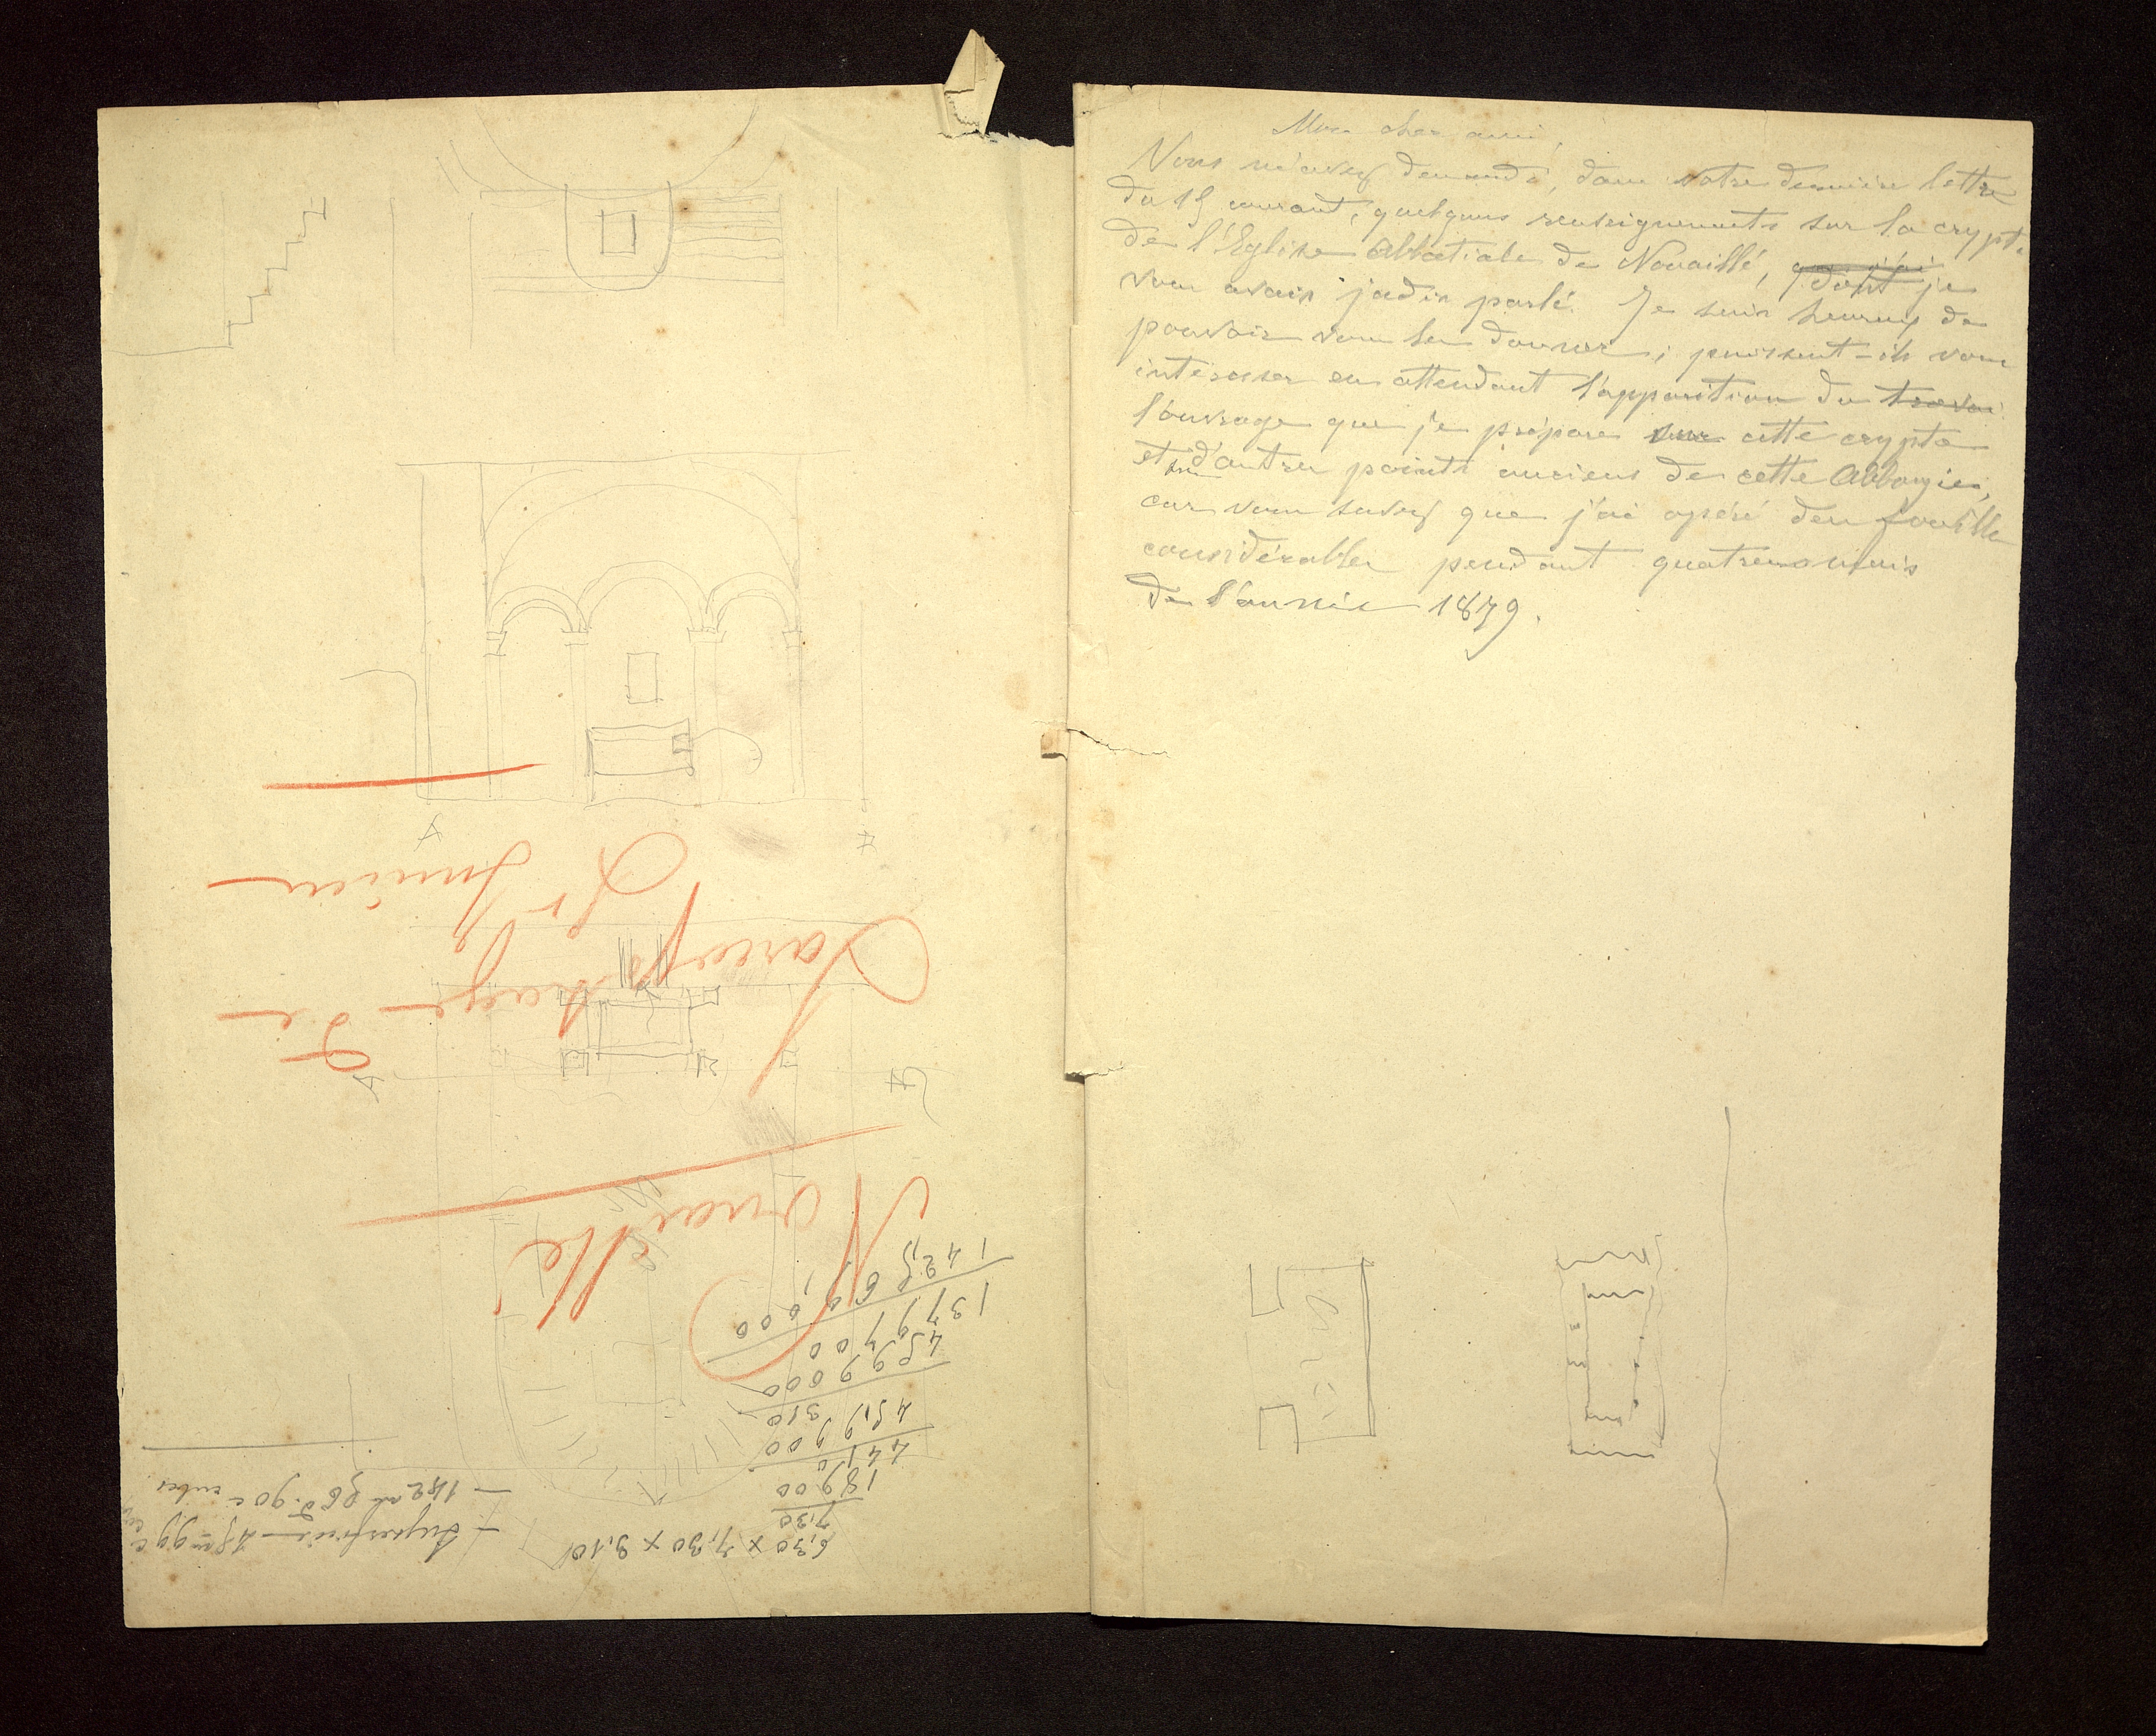 Mon cher ami,
Vous m'avez demandé, dans votre dernière lettre
du 15 courant, quelques renseignements sur la crypte
de l'Eglise Abbatiale de Nouaillé, dont je
vous avais jadis parlé. Je suis heureux de
pouvoir vous les donner ; puissent-ils vous
intéresser en attendant l'apparition du travai
l'ouvrage que je prépare sur cette crypte
et sur d'autres points anciens de cette Abbaye,
car vous savez que j'ai opéré des fouilles
considérables pendant quatre mois
de l'année 1879.
Nouaillé
Sarcophage de
St Junien
6,30 x 7,30 x 3,10
7,30
18900
441
45,9900
310
4599000
1379700
142,569000
Superficie 45 m 99 c
142 m 56 d. 90 c cubes
A
A